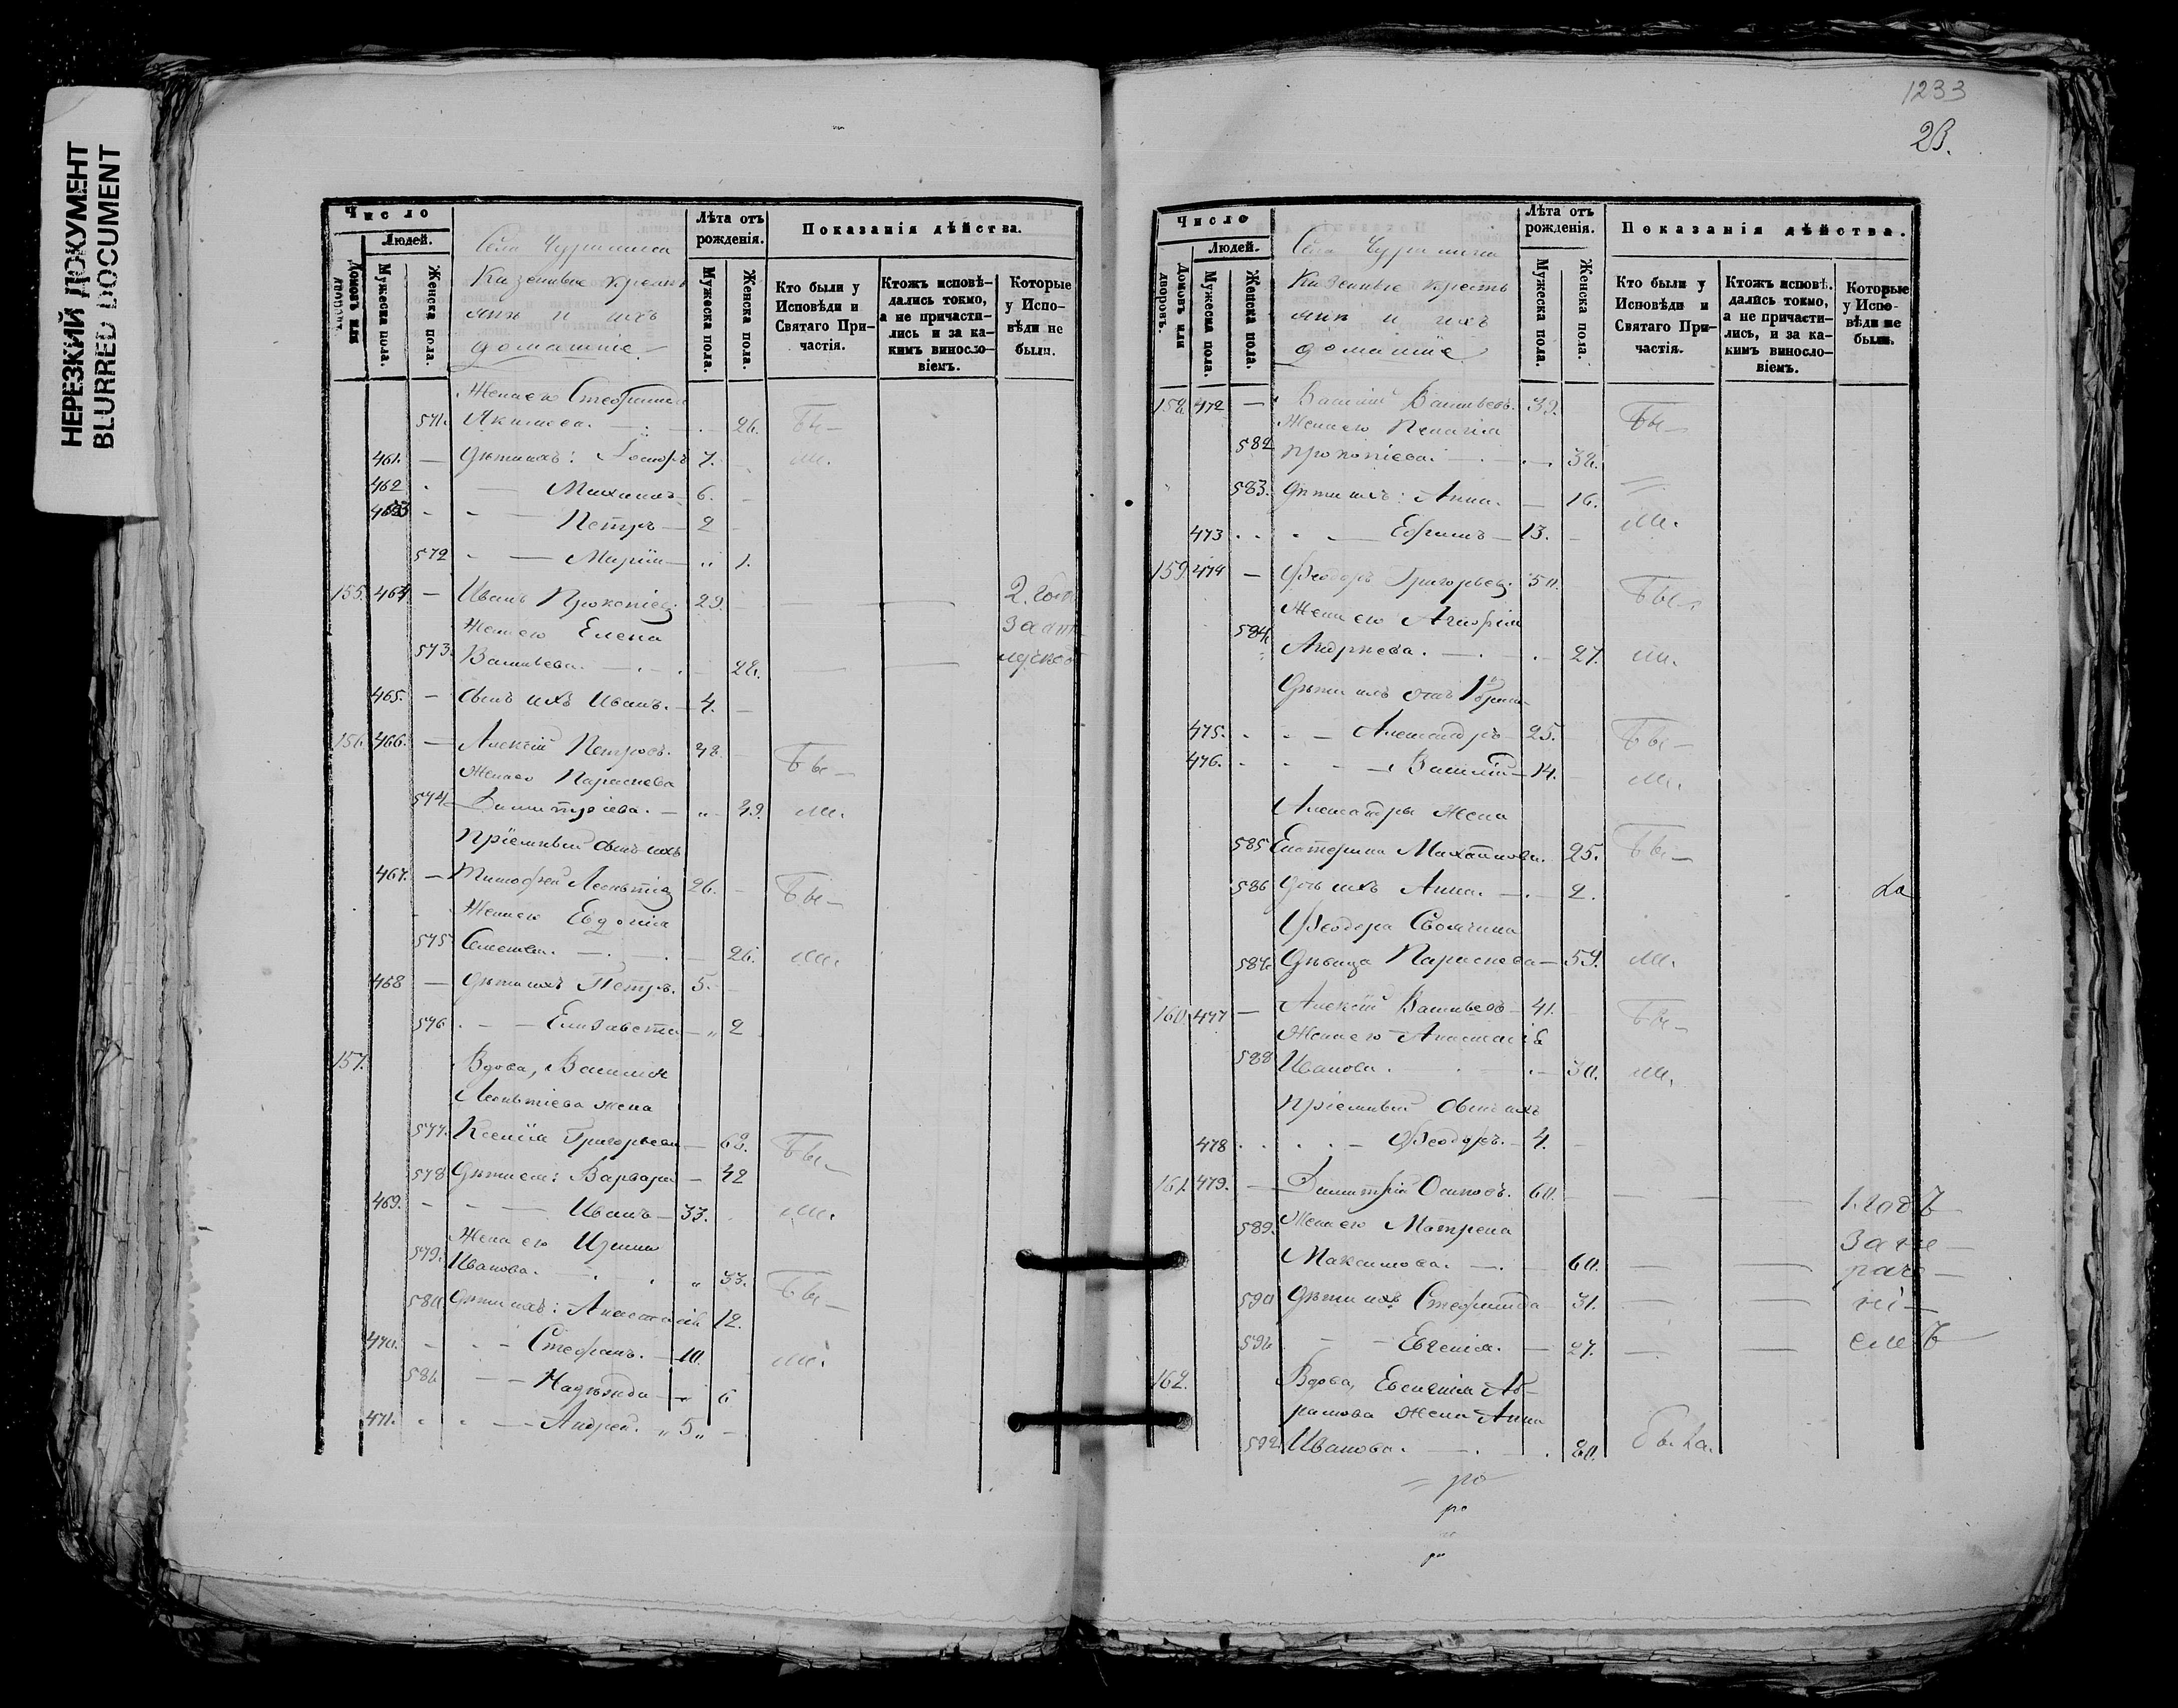 НЕРЕЗКИЙ ДОКУМЕНТ
BLURRED DOCUMENT
Число
Людей.
Домовъ или дворовъ.
Мужеска пола.
Женска пола.
Казенные кресть
яне и ихъ
домашніе
Лѣта отъ рожденія.
Мужеска пола.
Женска пола.
Показанія дѣйства.
Кто были у Исповѣди и Святаго При-частія.
Ктожъ исповѣ-дались токмо, а не причасти-лись и за ка-кимъ винослo-віемъ.
Которые у Испо-вѣди не были.
Жена его
571. Акимова. 26. Бы-
461. — Дѣти ихъ: 7. ли.
462 — 6.
463 — Петръ — 2
572 — Марія — 1.
155. 464 — Иванъ Прокопіев 29. — 2. года
Жена его Елена за от
573. Васильева. 28. лучкою
465. — сынъ ихъ Иванъ. — 4.
156. 466. — Алексій Петровъ. 48. Бы-
Жена его Параскева
574. Димитріева. — 49. ли.
Пріемный сынъ ихъ
467. — Тимофей Леонтіев 26. Бы-
Жена его Евдокія
575 26. ли.
468 — Дѣти ихъ Петръ. 5.
576 — Елизавета — 2
157. Вдова, Василія
Леонтіева жена
577. Ксенія Григорьева — 62. Бы-
578 Дѣти ея: Варвара — 42
469. — Иванъ — 33. ли.
Жена его Ирина
579. Иванова. 33. Бы-
580. Дѣти ихъ: Анастасія 12.
470. — Стефанъ. — 10. ли.
581. — Надежда — 6
471. — Андрей. 5
1233
23.
Число
Людей.
Домовъ или дворовъ.
Мужеска пола.
Женска пола.
Казенные кресть
яне и ихъ
домашніе
Лѣта отъ рожденія.
Мужеска пола.
Женска пола.
Показанія дѣйства.
Кто были у Исповѣди и Святаго При-частія.
Ктожъ исповѣ-дались токмо, а не причасти-лись, и за ка-кимъ винослo-віемъ.
Которые у Испо-вѣди не были.
158. 472 — Василій Васильевъ. 39. Бы-
Жена его Пелагія
582 Прокопіева. 38.
583. Дѣти ихъ: Анна. — 16.
473 — Ефимъ — 13. ли.
159 474 — Феодоръ Григорьев. 50. Бы-
Жена его Агафія
584. Андреева. 27. ли.
Дѣти ихъ отъ 1го брака
475. — Александръ — 25. Бы-
476. — Василій — 14. ли.
Александра жена
585 Екатерина Михайлова. 25. Бы-
586 дочь ихъ Анна. 2.
Феодора Своячина
587. Дѣвица Параскева — 59. ли.
160. 477 — Алексій Васильевъ — 41. Бы-
Жена его Анастасія
588 Иванова. 30. ли.
Пріемный сынъ ихъ
478 — Феодоръ. — 4.
161. 479. — Димитрій Осиповъ. 60. — 1. годъ
589. Жена его Матрена за не
Максимова. 60. — раче
590 Дѣти ихъ Стефанида 31. — ні
591. — Евгенія. — 27. — емъ
162. Вдова, Евсигнія Аб-
рамова жена Анна
592. Иванова. 80. Была.